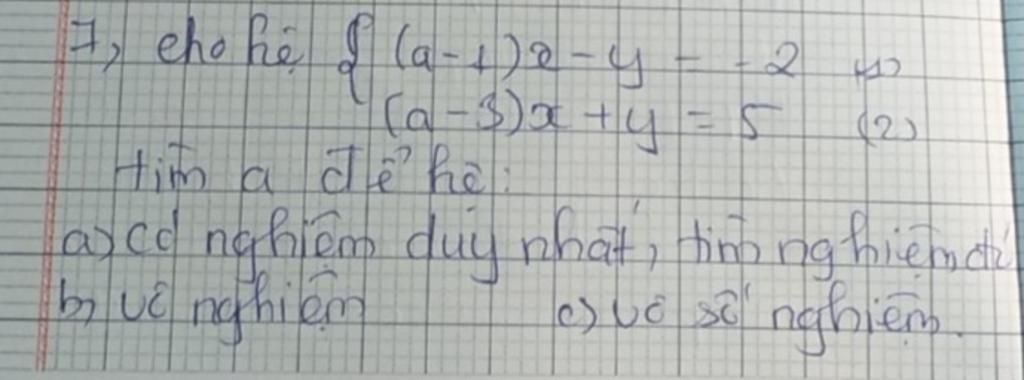 7, cho hệ { (a-1)x - y = -2 (1)
(a-3)x + y = 5 (2)
tìm a để hệ:
a) có nghiệm duy nhất, tìm nghiệm đó
b, vô nghiệm c) vô số nghiệm.